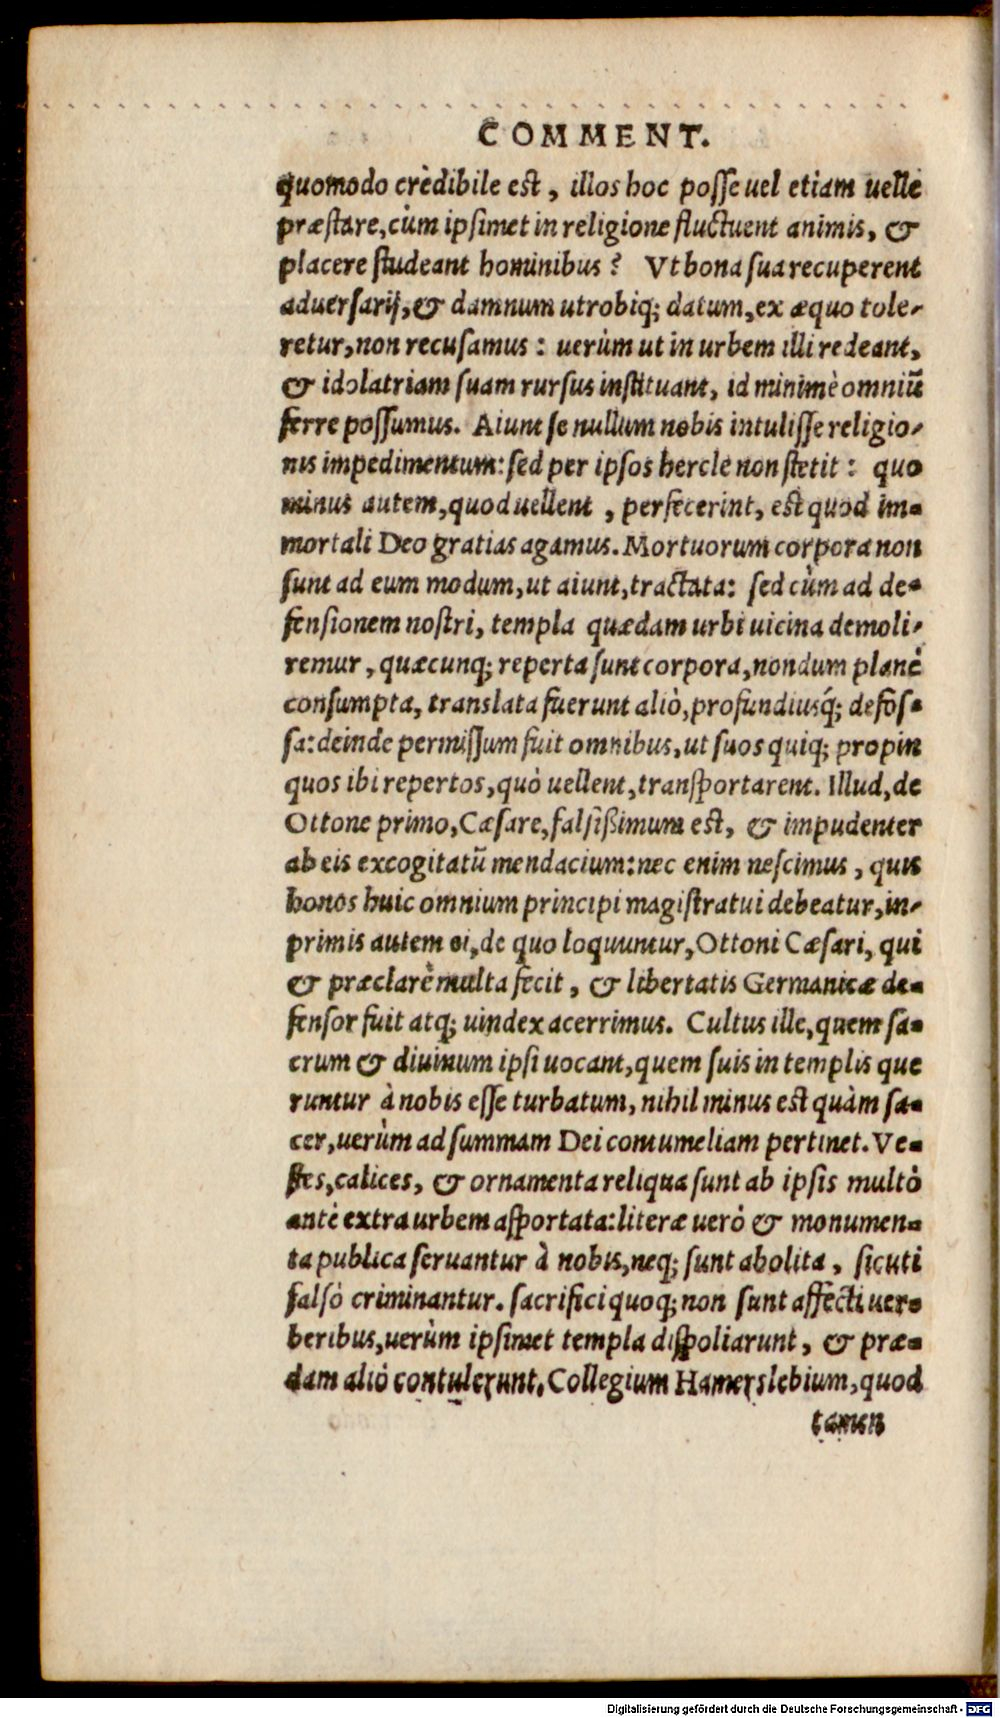 COMMENT.
quomodo crèdibile est, illos hoc posse uel etiam uelle
præstare, cùm ipsimet in religione fluctuent animis, &
placere studeant hominibus? Vt bona sua recuperent
aduersarij, & damnum utrobiq; datum, ex æquo tole-
retur, non recusamus: uerùm ut in urbem illi redeant,
& idolatriam suam rursus instituant, id minimè omniũ
ferre possumus. Aiunt se nullum nobis intulisse religio-
nis impedimentum: sed per ipsos hercle non stetit: quo
minus autem, quod uellent, perfecerint, est quod im-
mortali Deo gratias agamus. Mortuorum corpora non
sunt ad eum modum, ut aiunt, tractata: sed cùm ad de-
fensionem nostri, templa quædam urbi uicina demoli-
remur, quæcunq; reperta sunt corpora, nondum planè
consumpta, translata fuerunt aliò, profundiusq́; defos-
sa: deinde permissum fuit omnibus, ut suos quiq; propin
quos ibi repertos, quò uellent, transportarent. Illud, de
Ottone primo, Cæsare, falsißimum est, & impudenter
ab eis excogitatũ mendacium: nec enim nescimus, quis
honos huic omnium principi magistratui debeatur, in-
primis autem ei, de quo loquuntur, Ottoni Cæsari, qui
& præclarè multa fecit, & libertatis Germanicæ de-
fensor fuit atq; uindex acerrimus. Cultus ille, quem sa-
crum & diuinum ipsi uocant, quem suis in templis que
runtur à nobis esse turbatum, nihil minus est quàm sa-
cer, uerùm ad summam Dei contumeliam pertinet. Ve-
stes, calices, & ornamenta reliqua sunt ab ipsis multò
antè extra urbem asportata: literæ uerò & monumen-
ta publica seruantur à nobis, neq; sunt abolita, sicuti
falsò criminantur. sacrifici quoq; non sunt affecti uer-
beribus, uerùm ipsimet templa dispoliarunt, & præ-
dam aliò contulerunt. Collegium Hamerslebium, quod
tamen
Digitalisierung gefördert durch die Deutsche Forschungsgemeinschaft - DFG